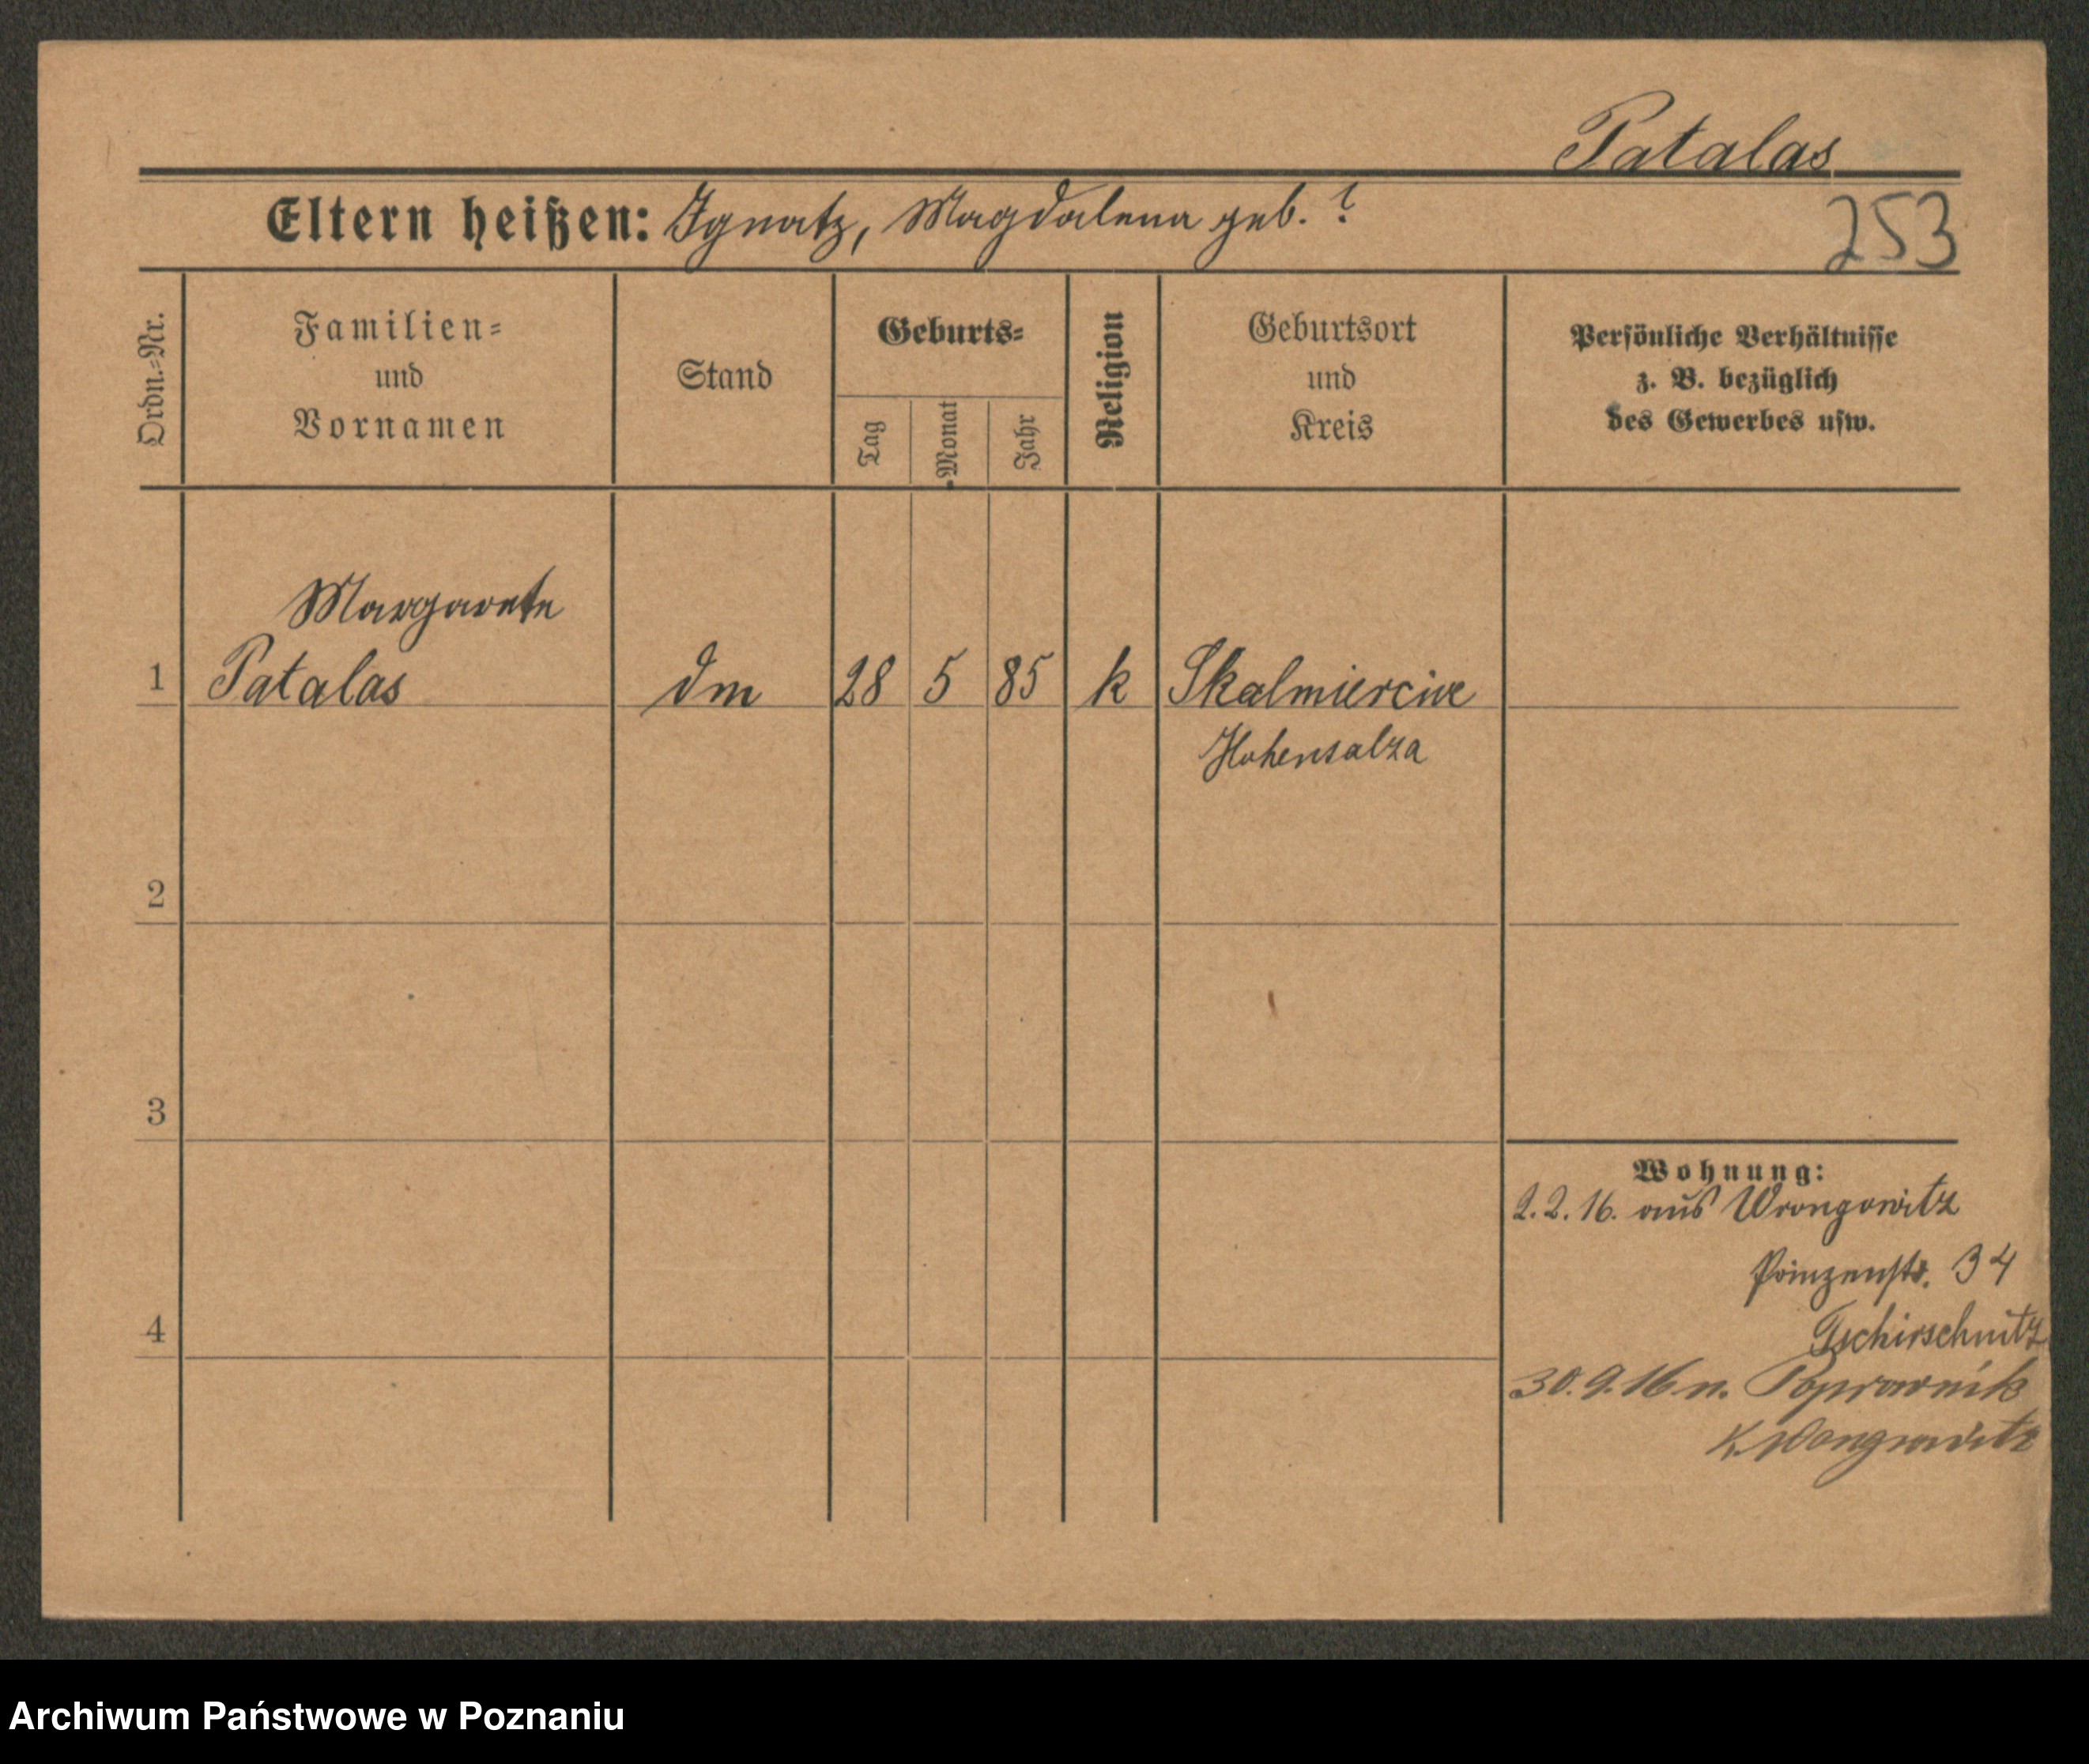 Patalas
Eltern heißen: Ignatz, Magdalena geb. ?
253
Ordn.-Nr.
Familien-
und
Vornamen
Stand
Geburts-
Tag
Monat
Jahr
Religion
Geburtsort
und
Kreis
Persönliche Verhältnisse
z. B. bezüglich
des Gewerbes usw.
Margarete
1 Patalas dm 28 5 85 k Skalmierciee
Hohensalza
2
3
Wohnung:
2.2.16. aus Wrongowitz
Prinzenstr. 34
4
Tschirschnitz
30.9.16 n. Poprownik
K. Wongrowitz
Archiwum Państwowe w Poznaniu